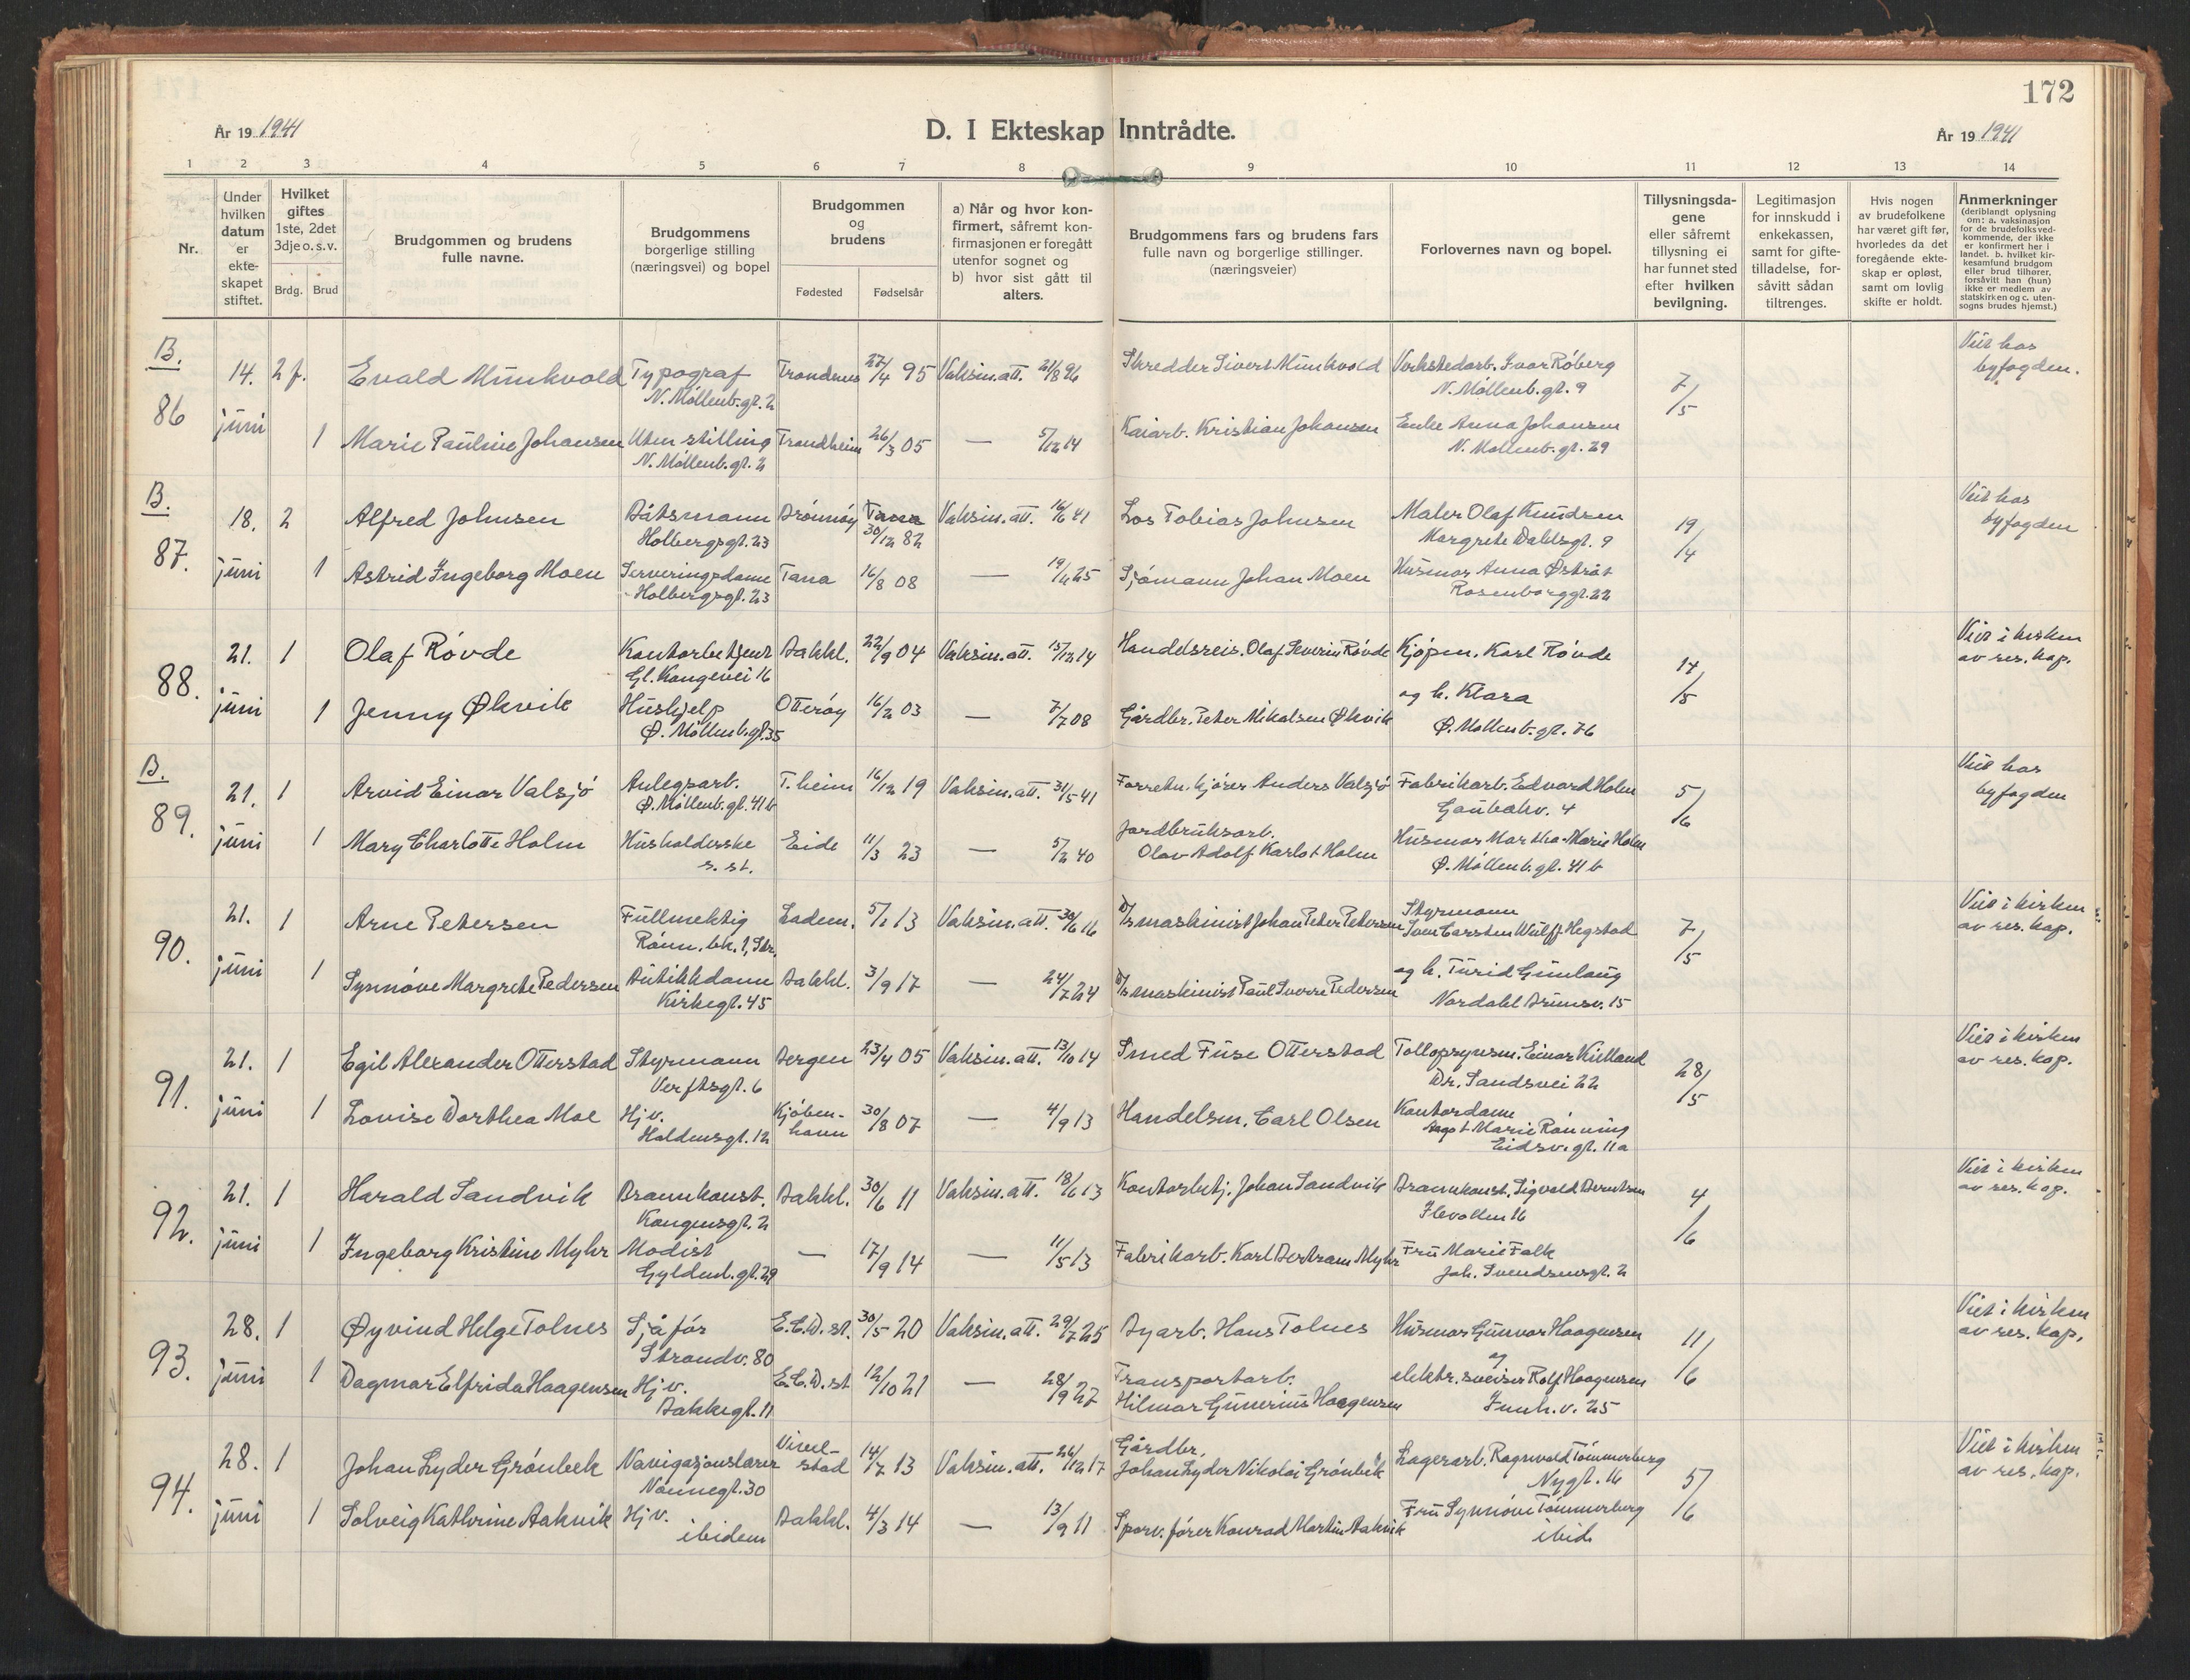 172
År 19 1941
D. I Ekteskap Inntrådte.
År 19 1941
1 2 3 4 5 6 7 8 9 10 11 12 13 14
Nr.
Under hvilken datum er ekte-skapet stiftet.
Hvilket giftes 1ste, 2det 3dje o. s. v.
Brdg. Brud
Brudgommen og brudens fulle navne.
Brudgommens borgerlige stilling (næringsvei) og bopel
Brudgommen og brudens
Fødested Fødselsår
a) Når og hvor kon-firmert, såfremt kon-firmasjonen er foregått utenfor sognet og b) hvor sist gått til alters.
Brudgommens fars og brudens fars fulle navn og borgerlige stillinger. (næringsveier)
Forlovernes navn og bopel.
Tillysningsda-gene eller såfremt tillysning ei har funnet sted efter hvilken bevilgning.
Legitimasjon for innskudd i enkekassen, samt for gifte-tilladelse, for-såvitt sådan tiltrenges.
Hvis nogen av brudefolkene har været gift før, hvorledes da det foregående ekte-skap er opløst, samt om lovlig skifte er holdt.
Anmerkninger (deriblandt oplysning om: a. vaksinasjon for de brudefolksved-kommende, der ikke er konfirmert her i landet. b. hvilket kir-kesamfund brudgom eller brud tilhører, forsåvitt han (hun) ikke er medlem av statskirken og c. uten-sogns brudes hjemst.)
B. 86 14. juni 2 f. Evald Munkvold Typograf N. Møllenb.gt. 2 Trondenes 27/4 95 Vaksin.att. 21/8 96 Skredder Sivert Munkvold Verkstedarb. Ivar Røberg N. Møllenb.gt. 9 7/5 Viet hos byfogden.
1 Marie Pauline Johansen Uten stilling N. Møllenb.gt. 2 Trondheim 26/3 05 — 5/12 14 Kaiarb. Kristian Johansen Enke Anna Johansen N. Møllenb.gt. 29
B. 87. 18. juni 2 Alfred Johnsen Båtsmann Holbergsgt. 23 Brønnøy Tana 30/12 82 Vaksin.att. 16/6 41 Los Tobias Johnsen Maler Olaf Knudsen Margrete Dahlsgt. 9 19/4 Viet hos byfogden
1 Astrid Ingeborg Moen Serveringsdame Holbergsgt. 23 Tana 16/8 08 — 19/4 25 Sjømann Johan Moen Husmor Anna Østråt Rosenborggt. 22
88. 21. juni 1 Olaf Røvde Kontorbetjent Gl. Kongevei 16 Bakkl. 22/9 04 Vaksin.att. 15/12 14 Handelsreis. Olaf Severin Røvde Kjøpm. Karl Røvde 14/5 Viet i kirken av res. kap.
1 Jenny Økvik Hushjelp Ø. Møllenb.gt. 35 Otterøy 16/2 03 — 7/7 08 Gårdbr. Peter Mikalsen Økvik og h. Klara Ø. Møllenb.gt. 76
B. 89. 21. juni 1 Arvid Einar Valsjø Anlegsarb. Ø. Møllenb.gt. 41 b T.heim 16/12 19 Vaksin.att. 31/5 41 Forretn.kjører Anders Valsjø Fabrikarb. Edvard Holm 4 5/6 Viet hos byfogden
1 Mary Charlotte Holm Husholderske s. st. Eide 11/3 23 — 5/2 40 Jordbruksarb. Olav Adolf Karlot Holm Husmor Martha Marie Holm Ø. Møllenb.gt. 41 b
90. 21. juni 1 Arne Petersen Fullmektig Rønn. bk. 1, Str. Ladem. 5/1 13 Vaksin.att. 30/6 16 D/s maskinist Johan Peter Petersen Styrmann Sven Carsten Wulff Hegstad 7/5 Viet i kirken av res. kap.
1 Synnøve Margrete Pedersen Butikkdame Kirkegt. 45 Bakkl. 3/9 17 — 24/7 24 D/s maskinist Paul Sverre Pedersen og h. Turid Gunlaug Nordahl Brunsv. 15
91. 21. juni 1 Egil Alexander Otterstad Styrmann Verftsgt. 6 Bergen 23/4 05 Vaksin.att. 13/10 14 Smed Fuse Otterstad Tollopsynsm. Einar Kielland Dr. Sandsvei 22 28/5 Viet i kirken av res. kap.
1 Lovise Dorthea Moe Hjv. Haldensgt. 12 Kjøben-havn 30/8 07 — 4/9 13 Handelsm. Carl Olsen Kontordame Aagot Marie Rønning Eidsv.gt. 11a
92. 21. juni 1 Harald Sandvik Brannkonst. Kongensgt. 2 Bakkl. 30/6 11 Vaksin.att. 18/6 13 Kontorbetj. Johan Sandvik Brannkonst. Sigvald Berntsen Ilevollen 16 4/6 Viet i kirken av res. kap.
1 Ingeborg Kristine Myhr Modist Gyldenl.gt. 29 — 17/9 14 — 11/5 13 Fabrikarb. Karl Bertram Myhr Fru Marie Falk Joh. Svendsensgt. 2
93. 28. juni 1 Øyvind Helge Tolnes Sjåfør Strandv. 80 E.C.D.st. 30/5 20 Vaksin.att. 29/7 25 Byarb. Hans Tolnes Husmor Gunvor Haagensen og 11/6 Viet i kirken av res. kap.
1 Dagmar Elfrida Haagensen Hjv. Bakkegt. 11 E.C.D.st 12/10 21 — 28/9 27 Transportarb. Hilmar Gunerius Haagensen elektr. sveiser Rolf Haagensen Innh.v. 25
94. 28. juni 1 Johan Lyder Grønbek Navigasjonslærer Nonnegt. 30 stad 14/7 13 Vaksin.att. 26/12 17 Gårdbr. Johan Lyder Nikolai Grønbek Lagerarb. Ragnvald Tømmerberg Nygt. 16 5/6 Viet i kirken av res. kap.
1 Solveig Kathrine Aakvik Hjv. ibidem Bakkl. 4/3 14 — 13/9 11 Sporv.fører Konrad Martin Aakvik Fru Synnøve Tømmerberg ibid.